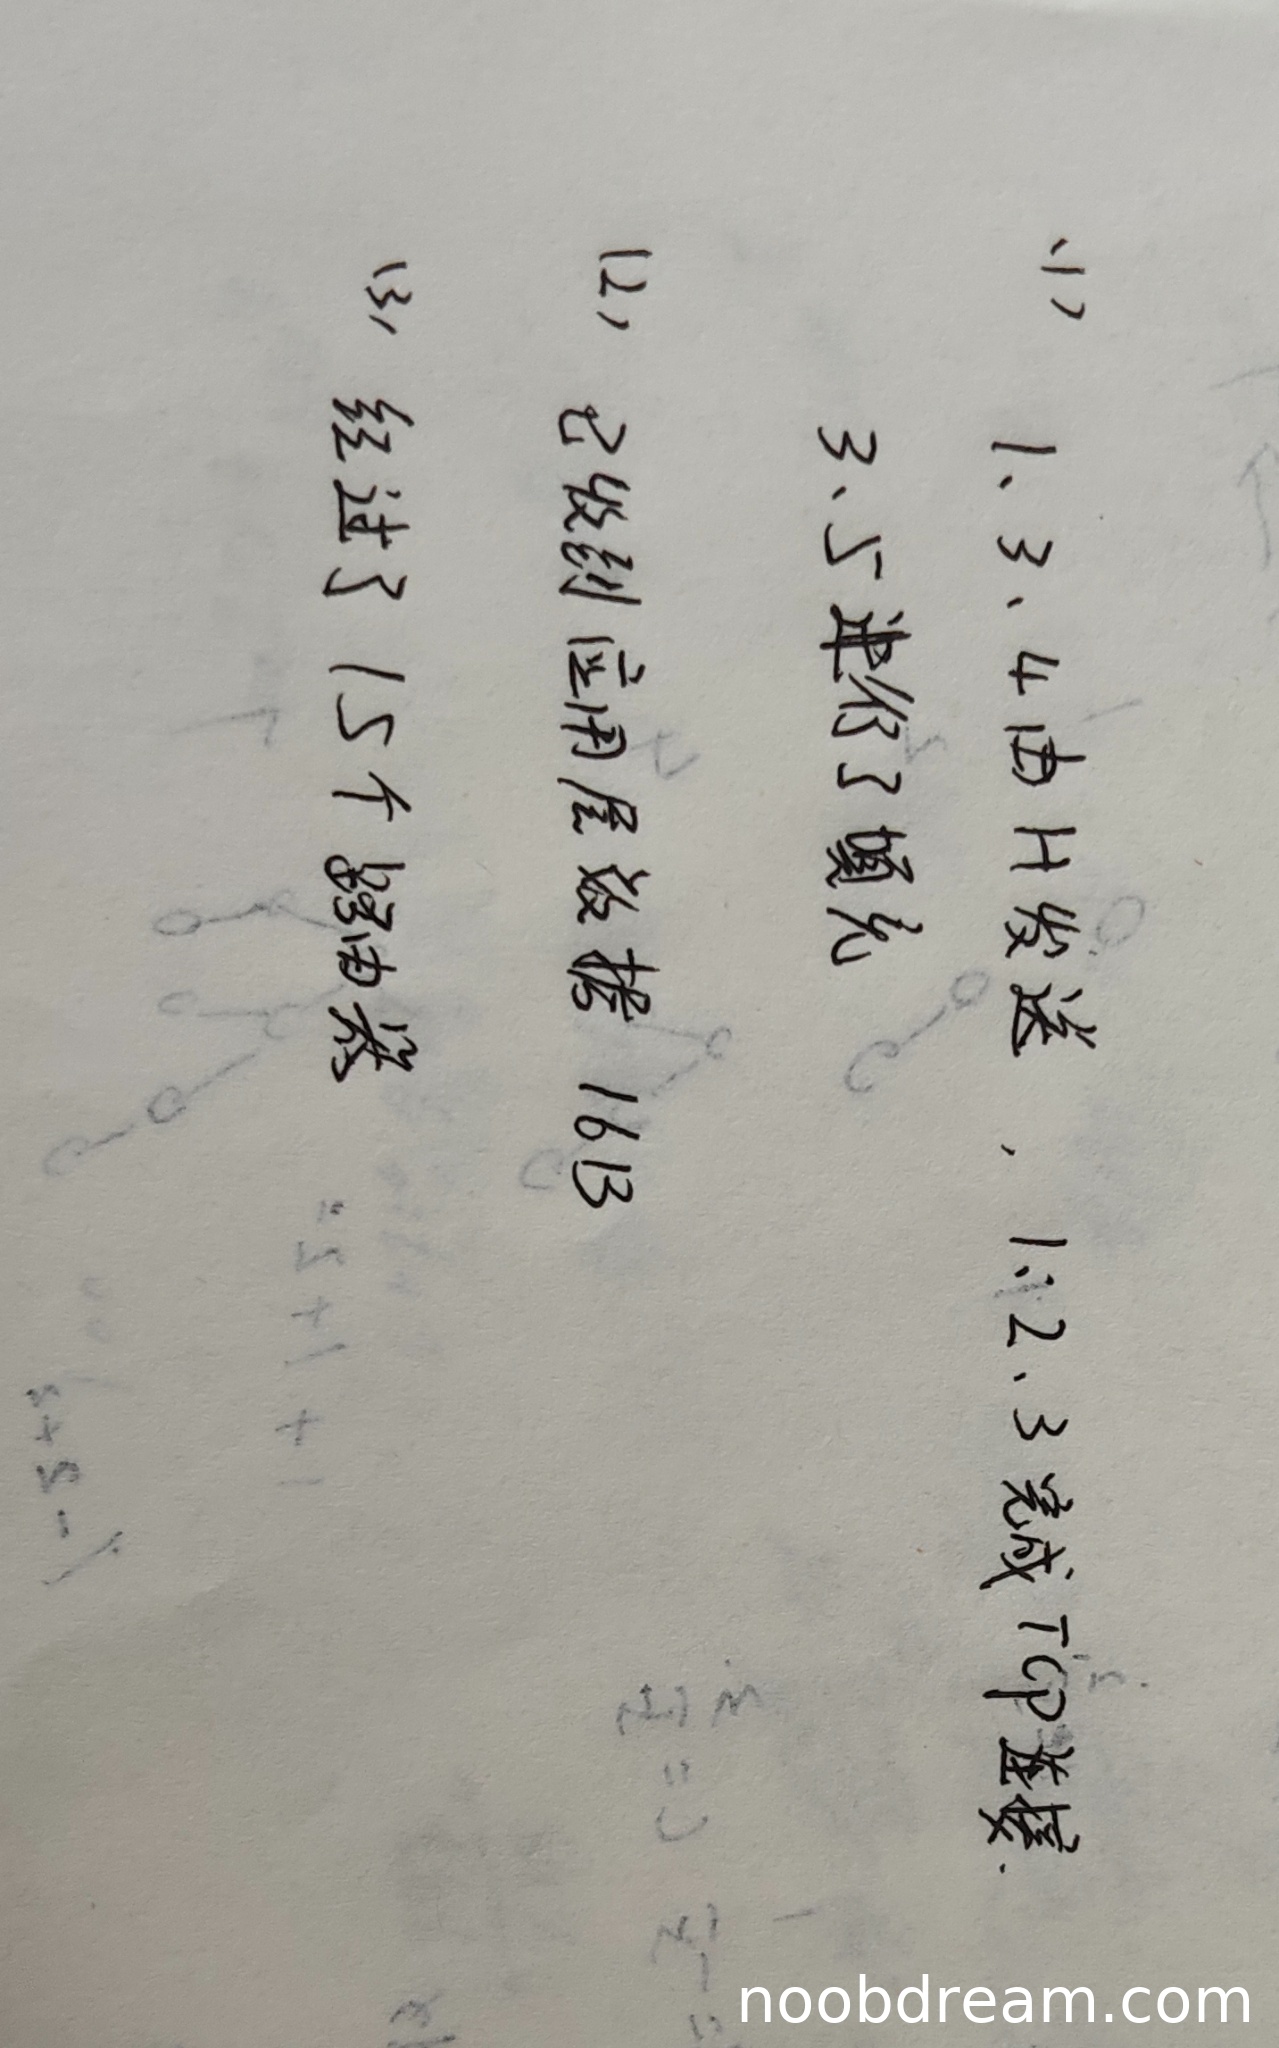 (1) 1、3、4由H发送, 1、2、3完成TCP连接.
3、5进行了填充
(2) 已收到应用层数据 16B
(3) 经过了15个路由器
noobdream.com